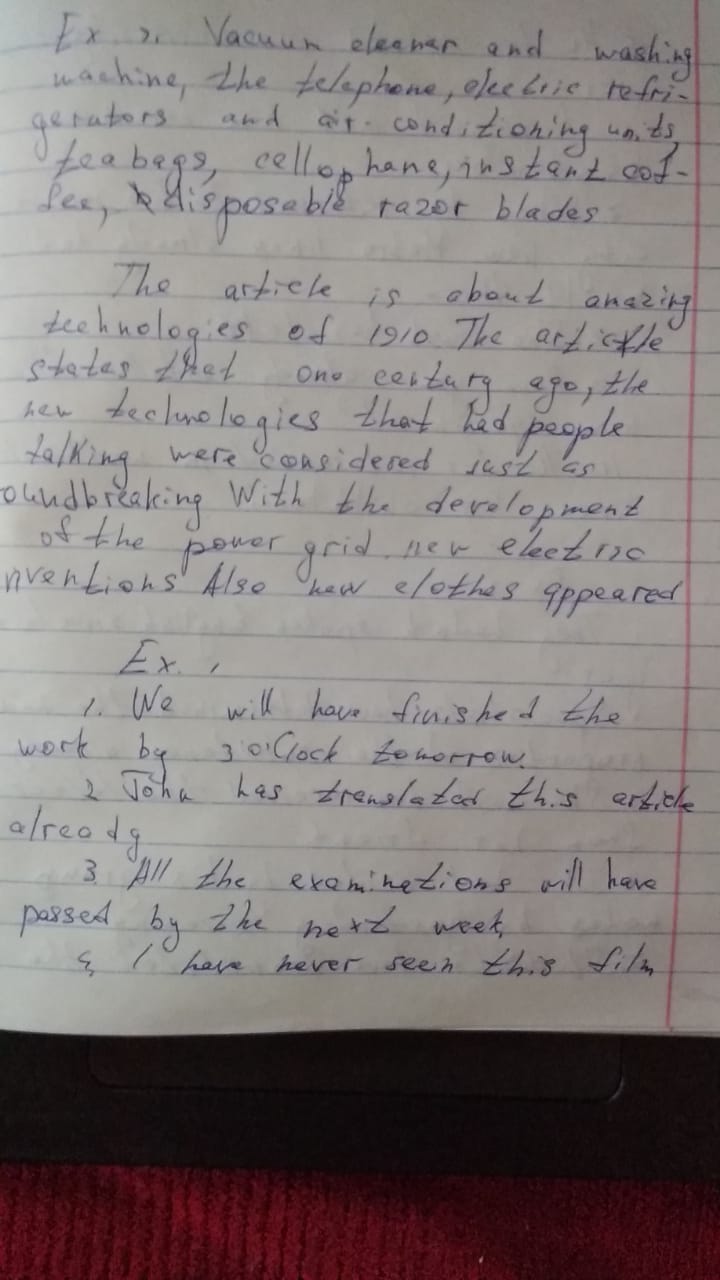 Ex 2. Vacuum cleaner and washing
machine, the telephone, electric refri-
gerators and air-conditioning units,
tea bags, cellophane, instant cof-
fee, disposable razor blades
The article is about amazing
technologies of 1910 The article
states that one century ago, the
new technologies that had people
talking were considered just as
oundbreaking With the development
of the power grid, new electric
nventions Also new clothes appeared
Ex. 1
1. We will have finished the
work by 3 o'Clock tomorrow.
2 John has translated this article
already
3. All the examinations will have
passed by the next week,
4, I have never seen this film